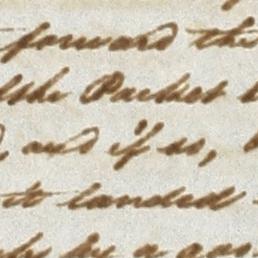 forward the
the Packet
and if so,
it landed
by a